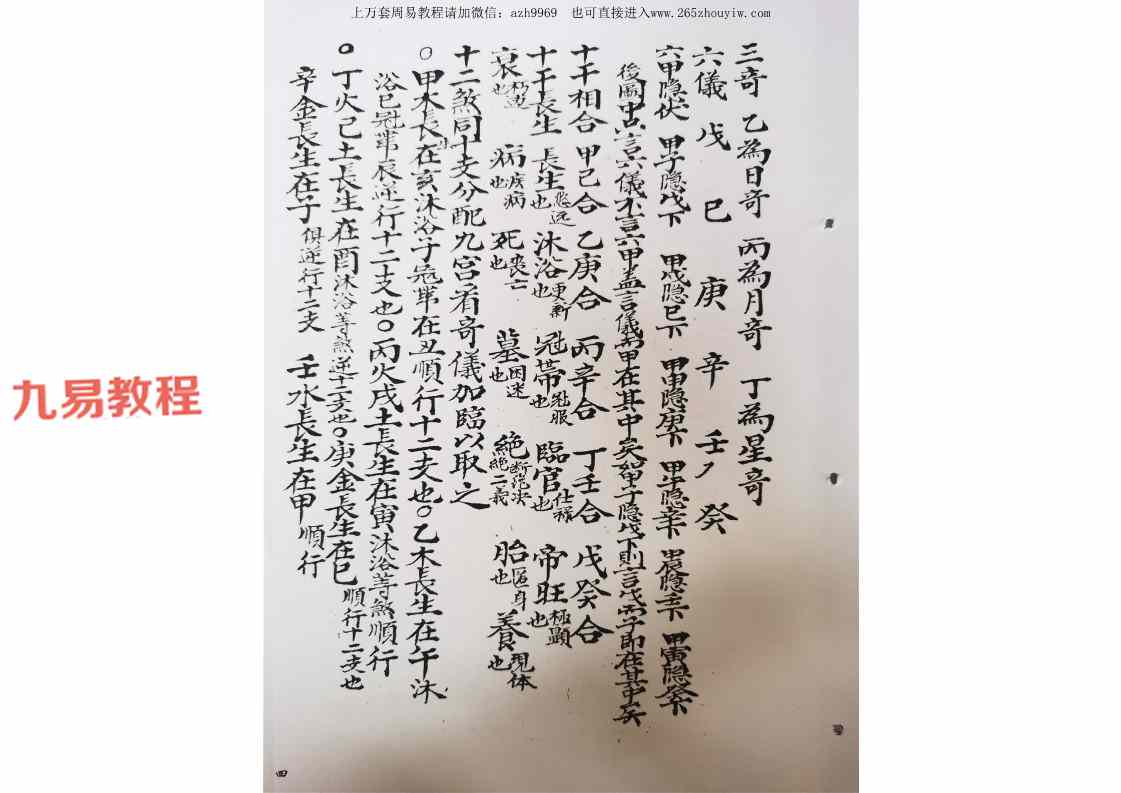 上万套周易教程请加微信：azh9969 也可直接进入www.265zhouyiw.com
三奇 乙為日奇 丙為月奇 丁為星奇
六儀 戊 己 庚 辛 壬 癸
六甲隐伏 甲子隐戊下 甲戌隐己下 甲申隐庚下 甲午隐辛下 甲辰隐壬下 甲寅隐癸下
後圖中只言六儀不言六甲盖言儀而甲在其中矣如甲子隐戊下則言戊而子即在其中矣
十干相合 甲己合 乙庚合 丙辛合 丁壬合 戊癸合
十干長生 長生悠远也 沐浴更新也 冠帶冠服也 臨官仕禄也 帝旺極顕也
衰朽败也 病疾病也 死喪亡也 墓困迷也 絕断绝决絕二義 胎匿身也 養現体也
十二煞同十支分配九宫看奇儀加臨以取之
○甲木長生在亥沐浴子冠帶在丑順行十二支也○乙木長生在午沐
浴巳冠帶辰逆行十二支也○丙火戌土長生在寅沐浴等煞順行
○丁火己土長生在酉沐浴等煞逆十二支也○庚金長生在巳順行十二支也
辛金長生在子俱逆行十二支 壬水長生在甲順行
四
九易教程